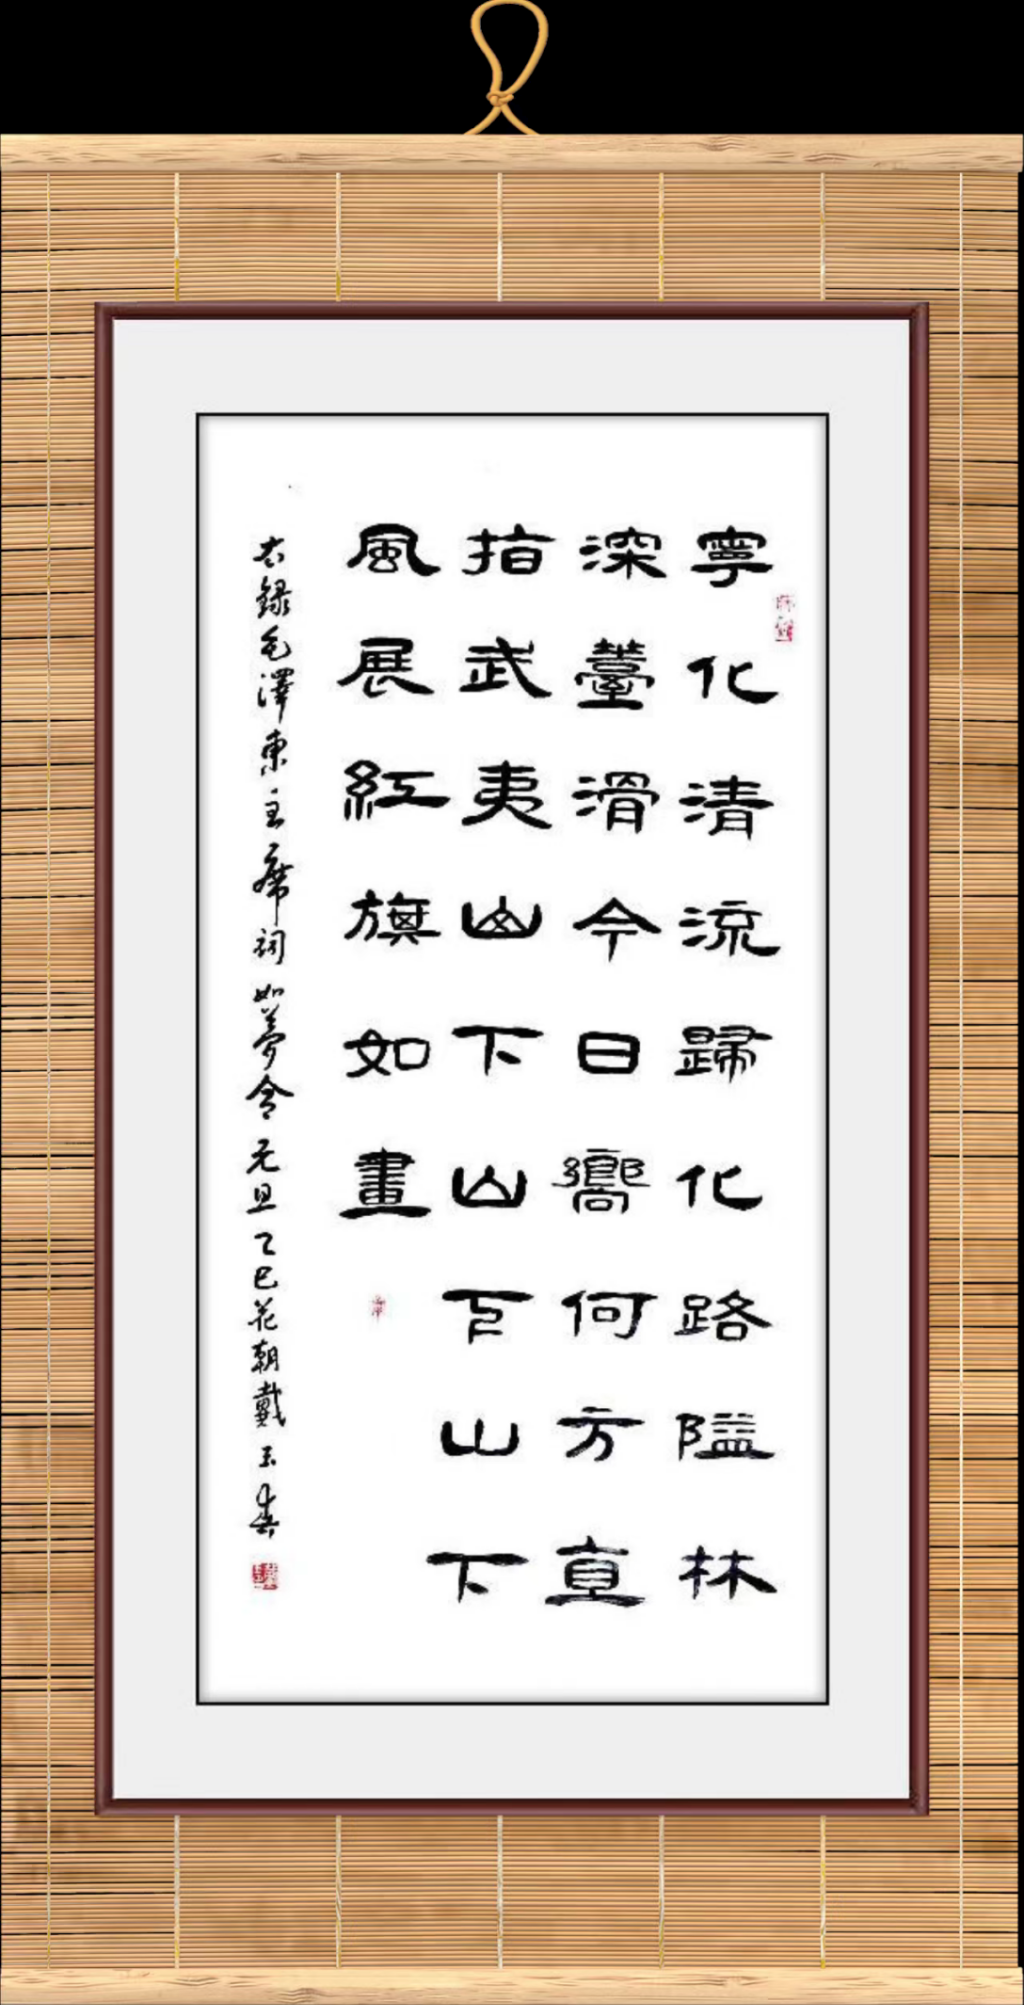 寧化清流歸化路隘林
深薹滑今日嚮何方直
指武夷山下山下山下
風展紅旗如畫
右録毛澤東主席詞如夢令元旦乙巳花朝戴玉春